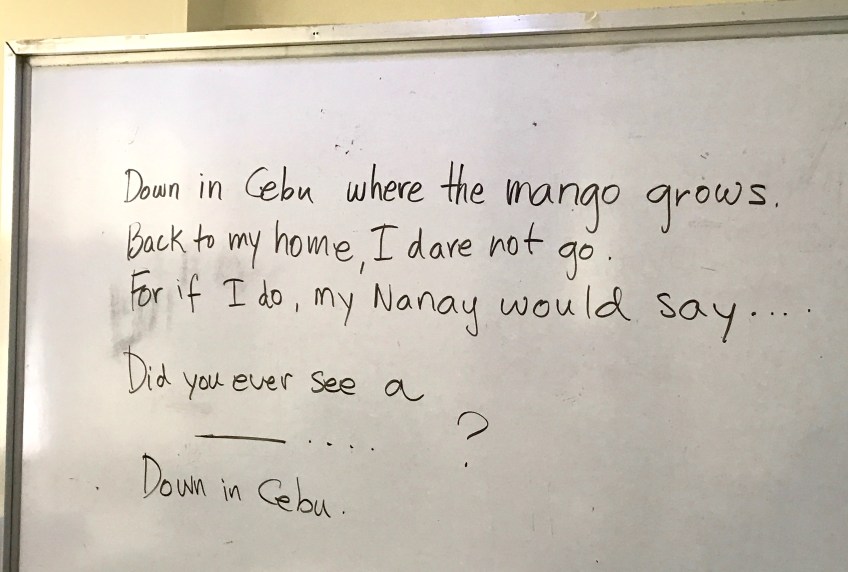 Down in Cebu where the mango grows.
Back to my home, I dare not go.
For if I do, my Nanay would say....
Did you ever see a
____ .... ?
Down in Cebu.